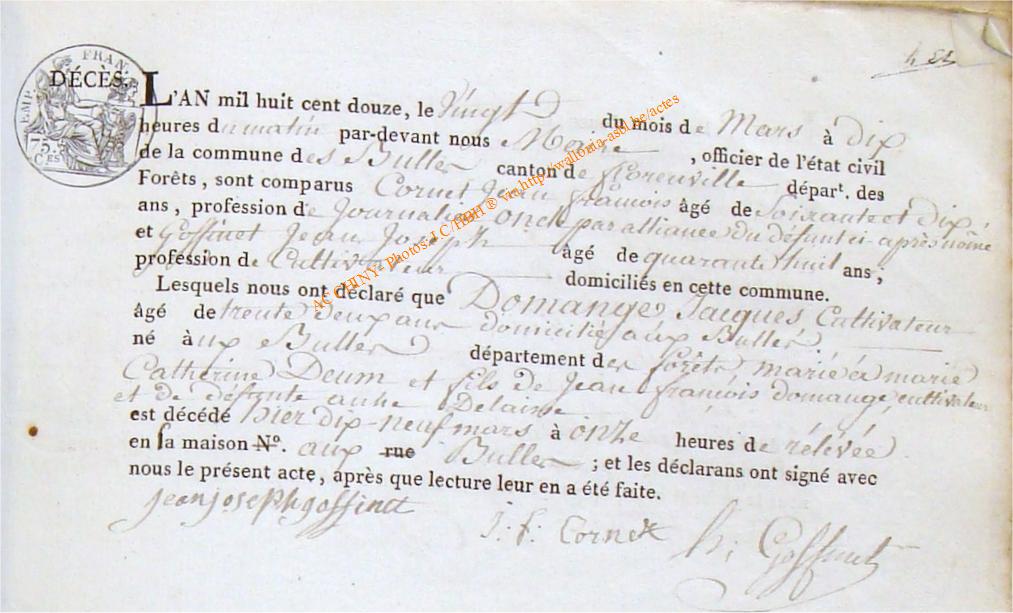 EMP. FRAN.
75.
C.ES
DÉCÈS.
L'AN mil huit cent douze, le Vingt du mois de Mars à dix
heures du matin par-devant nous Maire, officier de l'état civil
de la commune des Bulles canton de florenville départ. des
Forêts, sont comparus Cornet Jean françois âgé de Soixante et dix
ans, profession de Journalier oncle par alliance du défunt ci-après nômé
et Goffinet Jean Joseph âgé de quarante huit ans;
profession de Cultivateur domiciliés en cette commune.
Lesquels nous ont déclaré que Domange Jacques Cultivateur
âgé de trente deux ans domicilié aux Bulles
né aux Bulles département des forêts, marié à marie
Catherine Deum et fils de Jean françois domange, cultivateur
et de défunte anne Delaisse
est décédé hier dix-neuf mars à onze heures de rélévée
en sa maison N.° aux rue Bulles; et les déclarans ont signé avec
nous le présent acte, après que lecture leur en a été faite.
jean joseph goffinet
J: f: Cornet
h: Goffinet
AC CHINY- Photos: J C/HBH ® via http://wallonia-asbl.be/actes